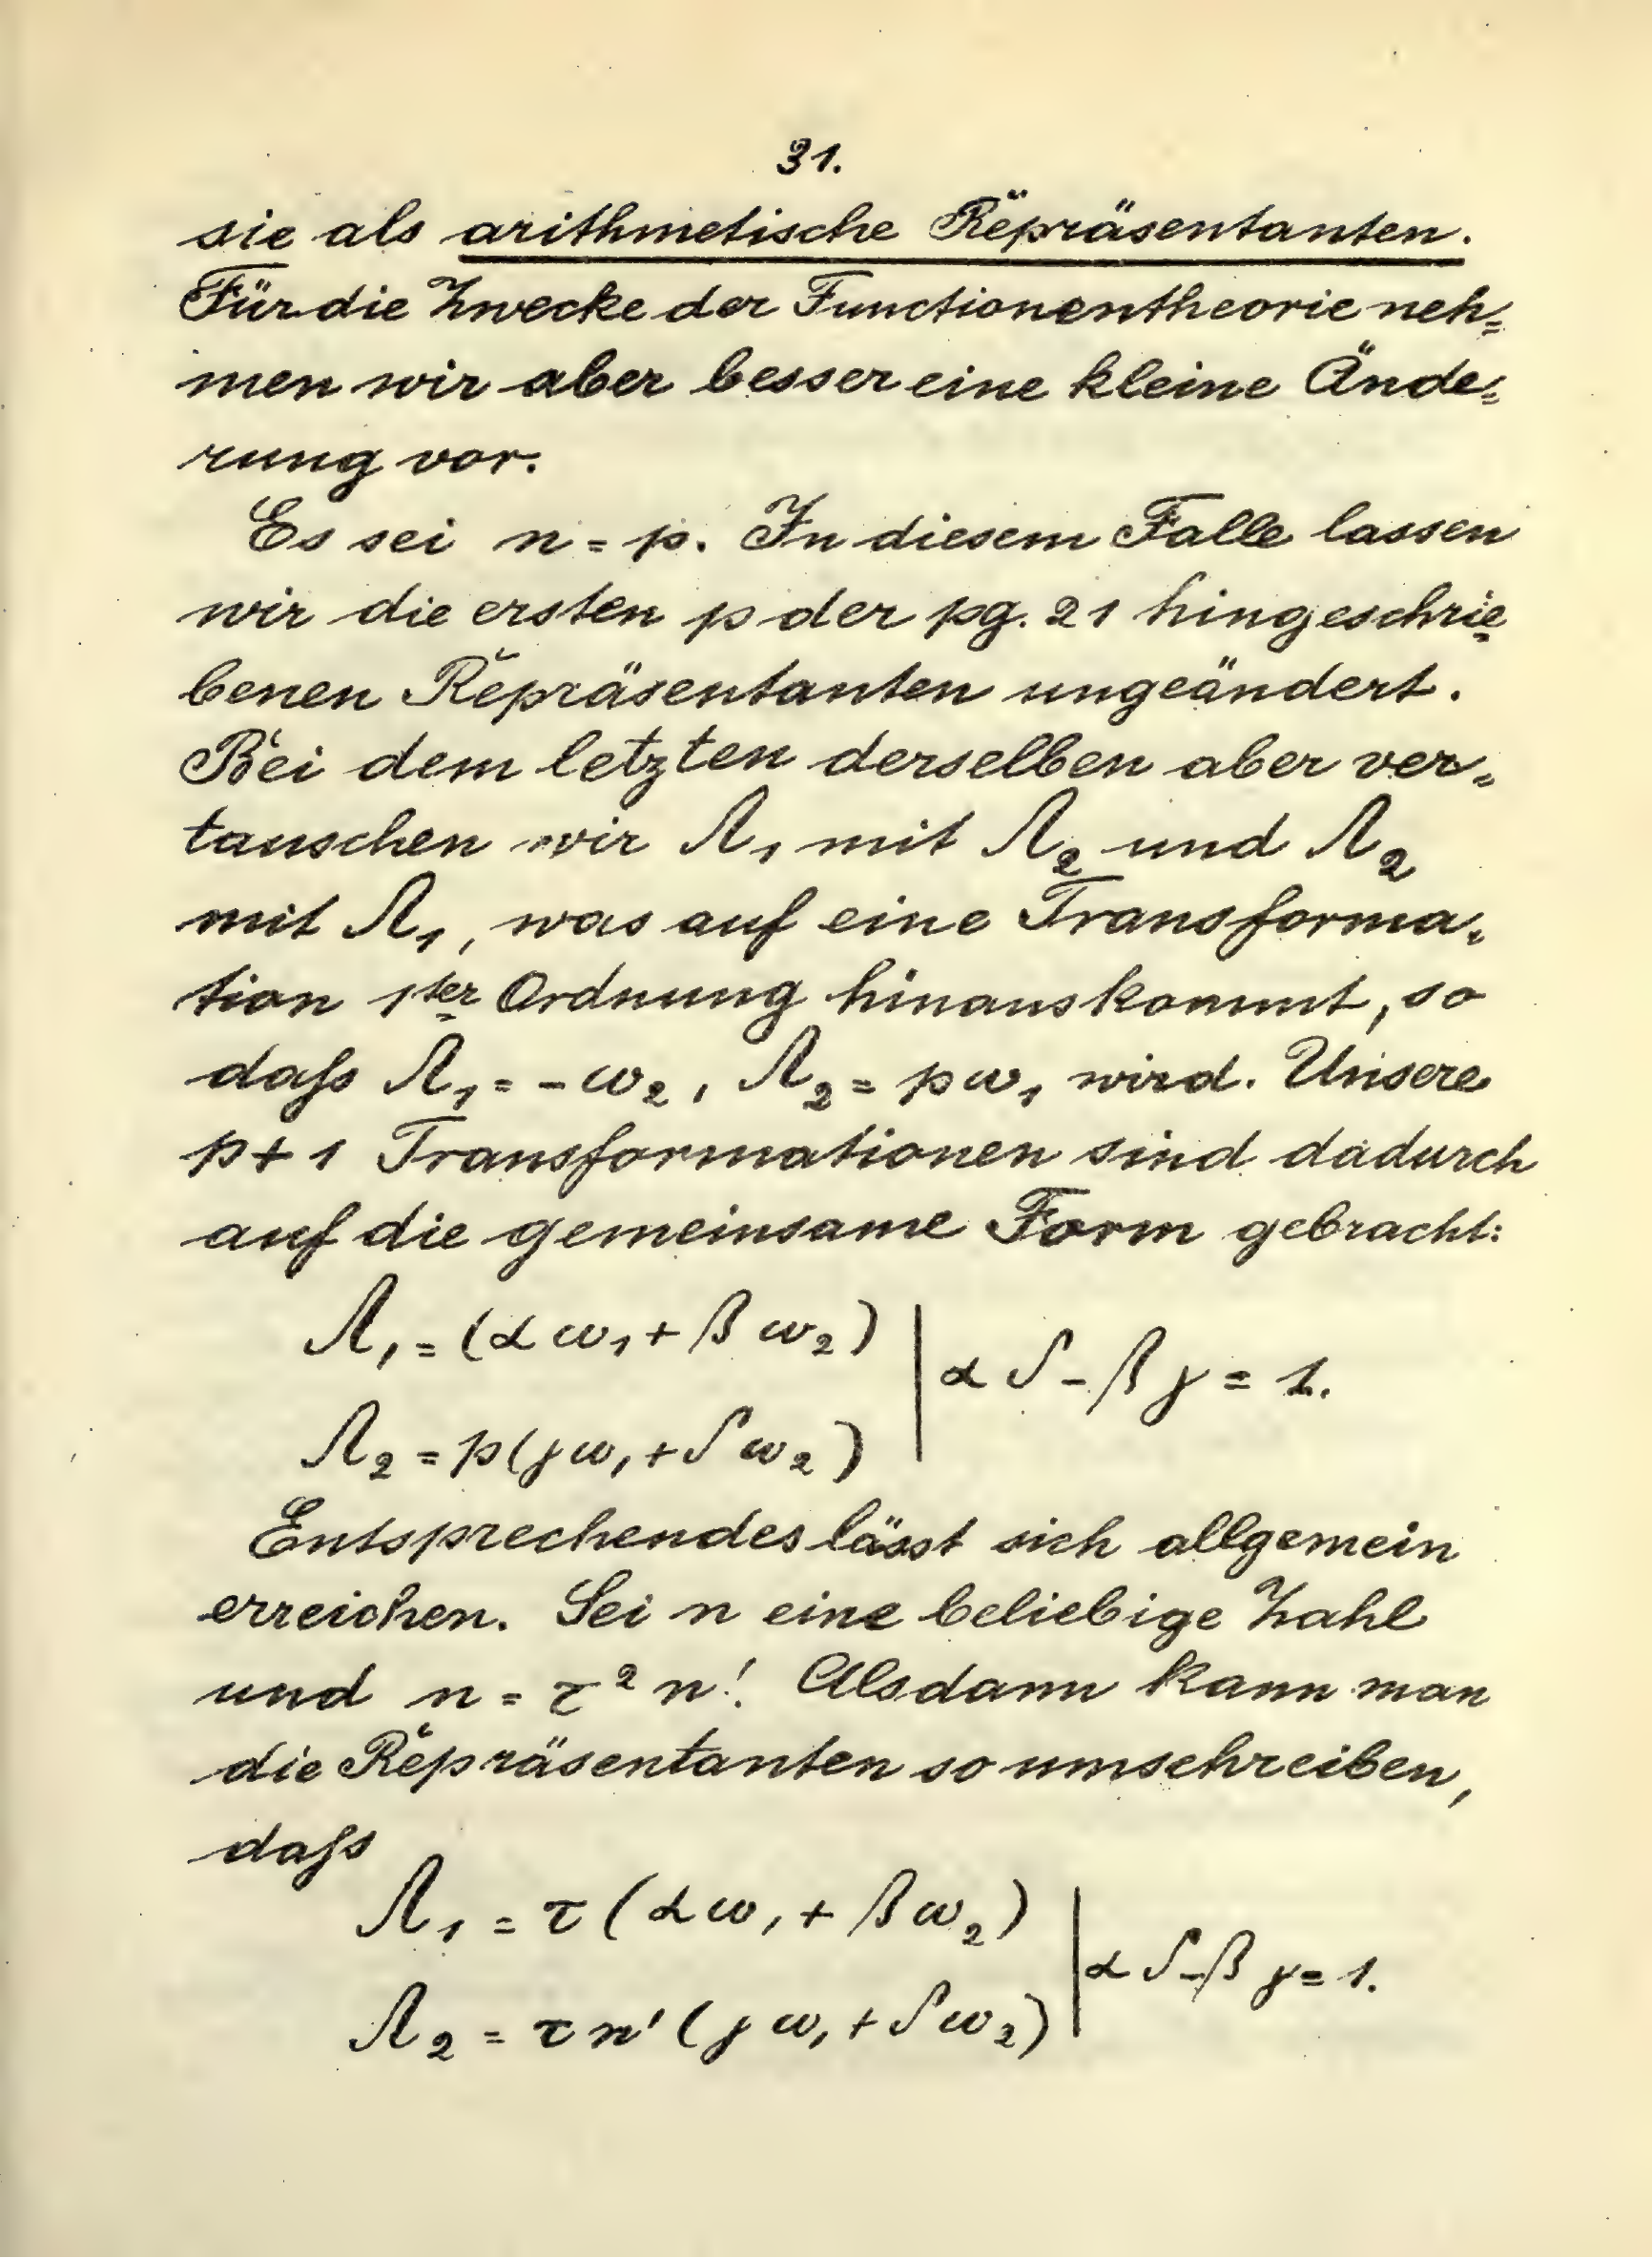 31.
sie als arithmetische Repräsentanten.
Für die Zwecke der Functionentheorie neh=
men wir aber besser eine kleine Ände=
rung vor.
Es sei n = p. In diesem Falle lassen
wir die ersten p der pg. 21 hingeschrie
benen Repräsentanten ungeändert.
Bei dem letzten derselben aber ver=
tauschen wir Λ₁ mit Λ₂ und Λ₂
mit Λ₁, was auf eine Transforma=
tion 1ter Ordnung hinauskommt, so
daſs Λ₁ = -ω₂, Λ₂ = pω₁ wird. Unsere
p+1 Transformationen sind dadurch
auf die gemeinsame Form gebracht:
Λ₁ = (αω₁ + βω₂) | αδ - βγ = 1.
Λ₂ = p(γω₁ + δω₂)
Entsprechendes lässt sich allgemein
erreichen. Sei n eine beliebige Zahl
und n = τ² n'. Alsdann kann man
die Repräsentanten so umschreiben,
daſs
Λ₁ = τ(αω₁ + βω₂) | αδ - βγ = 1.
Λ₂ = τn'(γω₁ + δω₂)